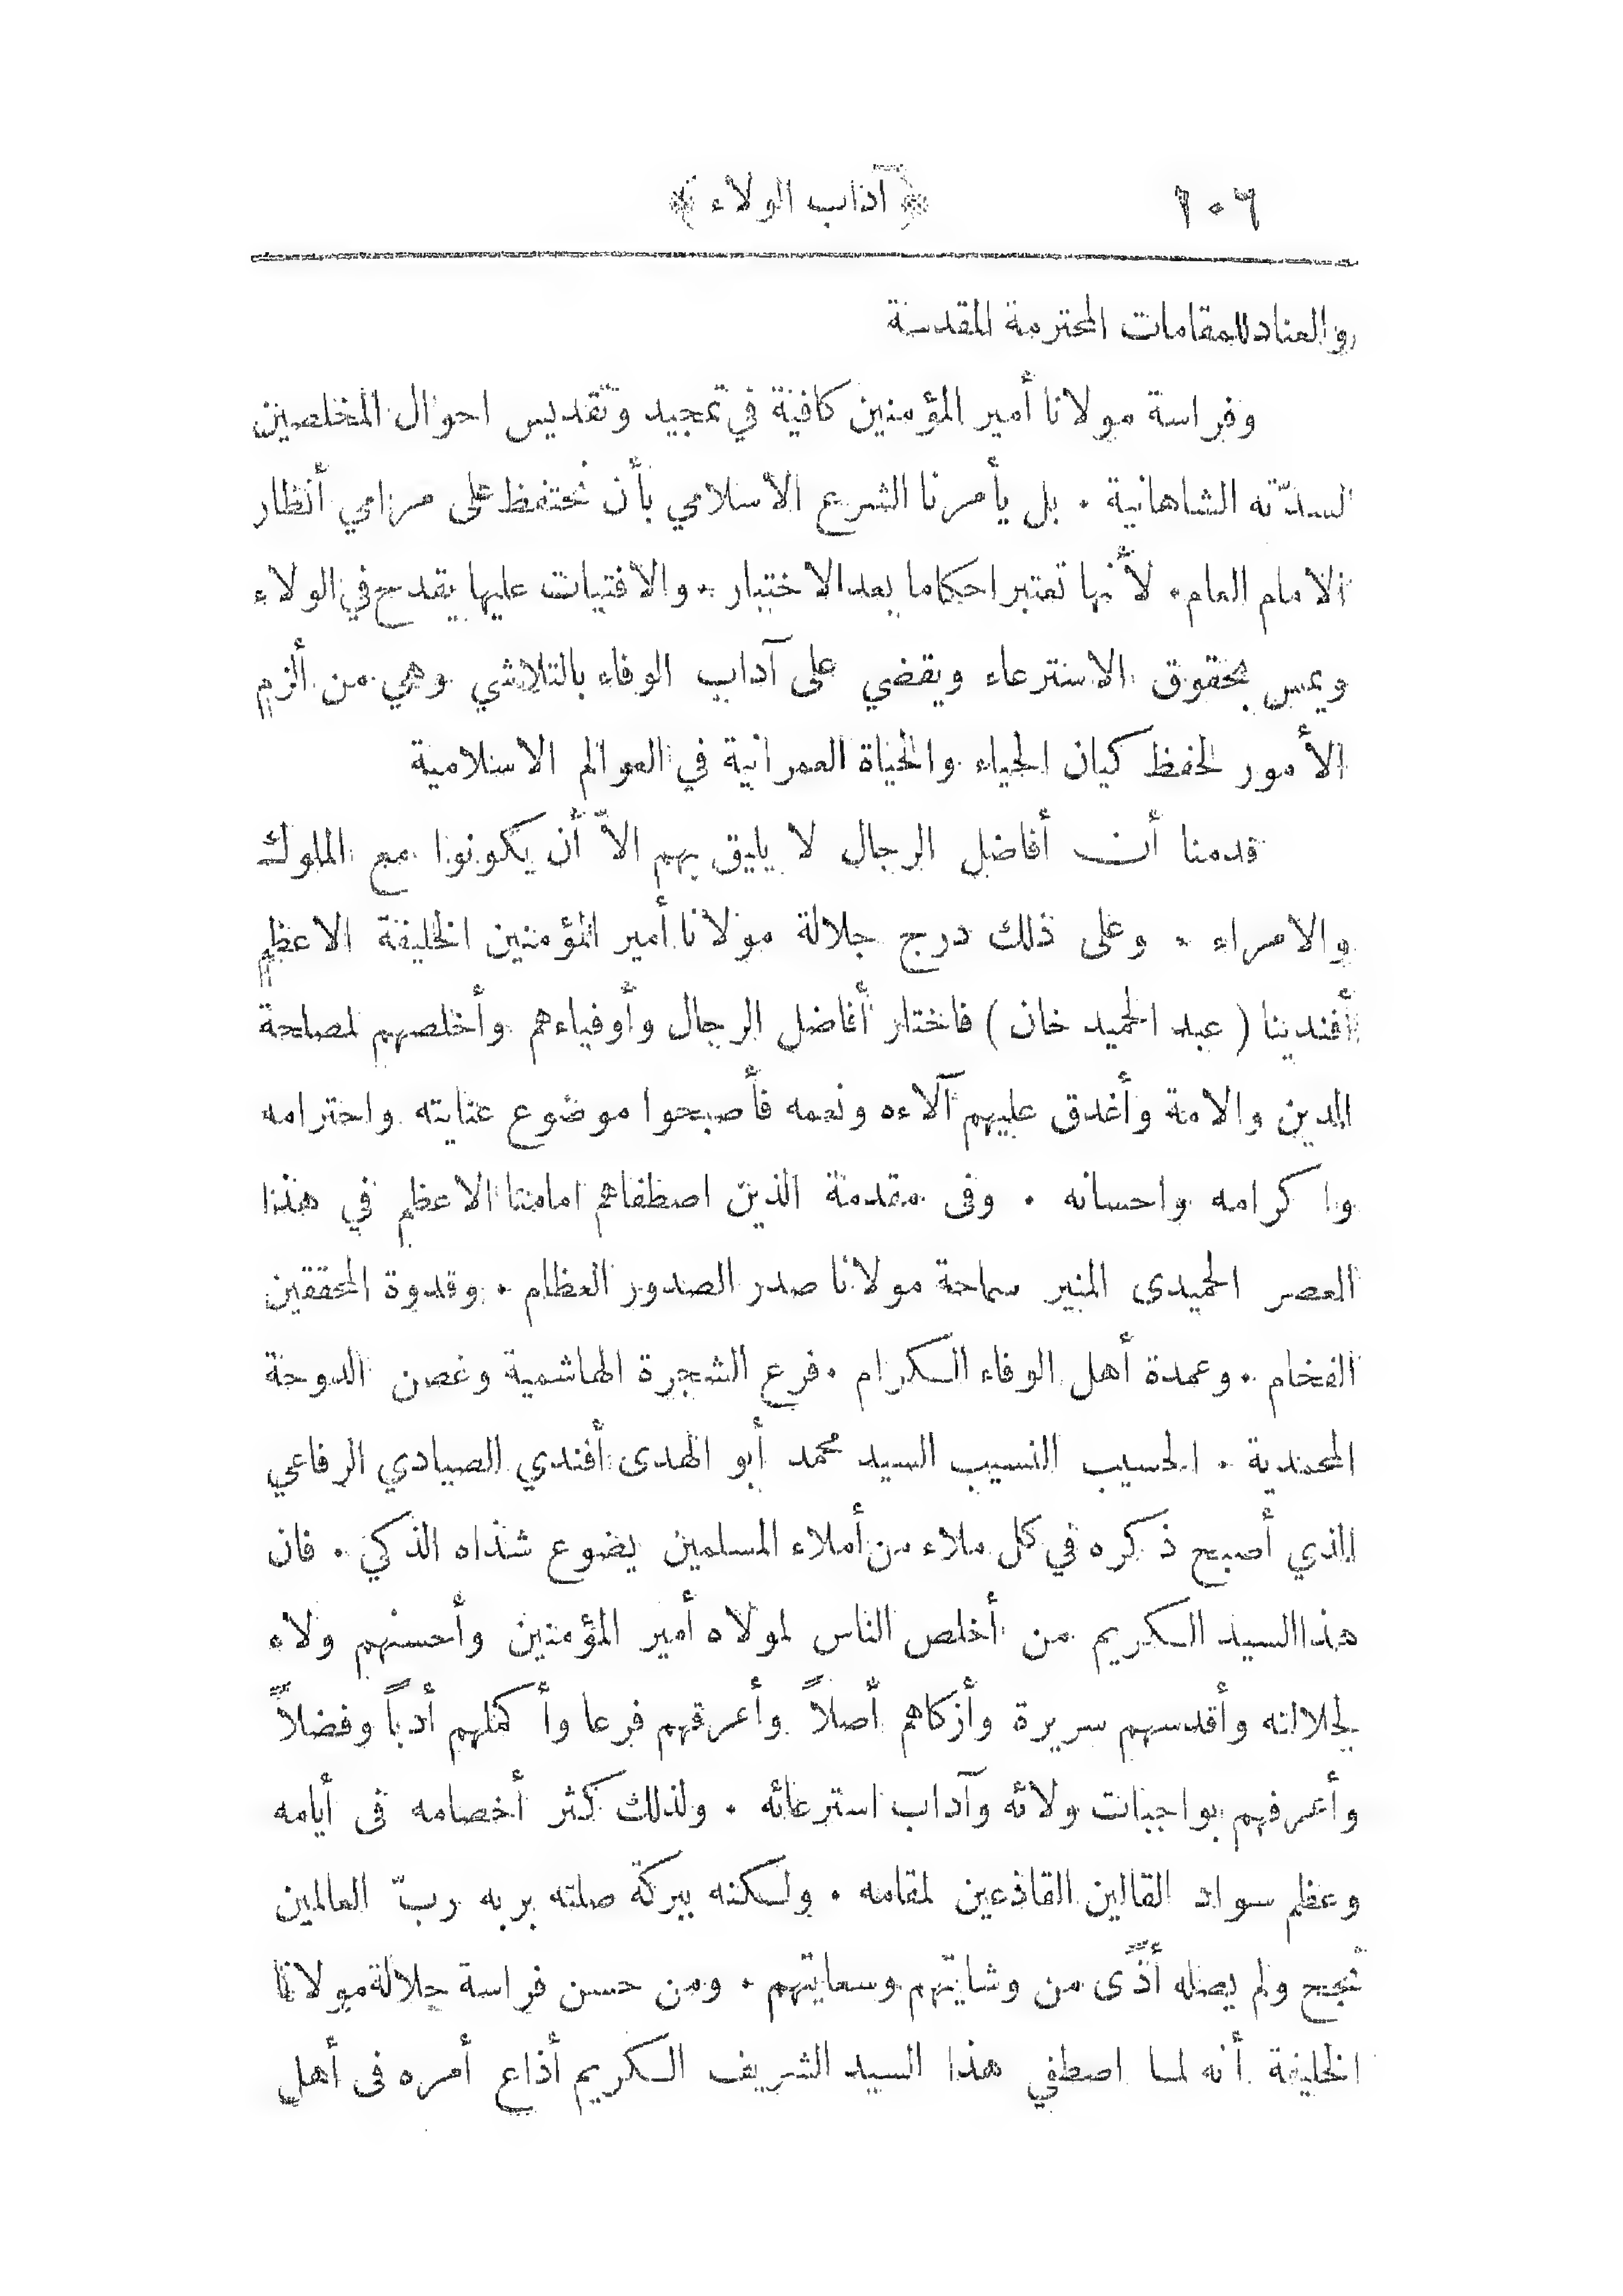 ١٠٦ ﴿ آداب الولاء ﴾
والعناد للمقامات المحترمة المقدسة
وفراسة مولانا أمير المؤمنين كافية في تمجيد وتقديس احوال المخلصين
لسدّته الشاهانية . بل يأمرنا الشرع الاسلامي بأن نحتفظ على مرامي أنظار
الامام العام . لأنها تعتبر احكاما بعد الاختبار . والافتيات عليها يقدح في الولاء
ويمس بحقوق الاسترعاء ويقضي على آداب الوفاء بالتلاشي وهي من ألزم
الأمور لحفظ كيان الحياء والحياة العمرانية في العوالم الاسلامية
قدمنا أن أفاضل الرجال لا يليق بهم الاّ أن يكونوا مع الملوك
والامراء . وعلى ذلك درج جلالة مولانا أمير المؤمنين الخليفة الاعظم
أفندينا ( عبد الحميد خان ) فاختار أفاضل الرجال وأوفياءهم وأخلصهم لمصلحة
الدين والامة وأغدق عليهم آلاءه ونعمه فأصبحوا موضوع عنايته واحترامه
واكرامه واحسانه . وفى مقدمة الذين اصطفاهم امامنا الاعظم في هذا
العصر الحميدى المنير سماحة مولانا صدر الصدور العظام . وقدوة المحققين
الفخام . وعمدة أهل الوفاء الكرام . فرع الشجرة الهاشمية وغصن الدوحة
المحمدية . الحسيب النسيب السيد محمد أبو الهدى أفندي الصيادي الرفاعي
الذي أصبح ذكره في كل ملاء من أملاء المسلمين يضوع شذاه الذكي . فان
هذا السيد الكريم من أخلص الناس لمولاه أمير المؤمنين وأحسنهم ولاء
لجلالته وأقدسهم سريرة وأزكاهم أصلاً وأعرقهم فرعا وأكملهم أدباً وفضلاً
وأعرفهم بواجبات ولائه وآداب استرعائه . ولذلك كثر أخصامه فى أيامه
وعظم سواد القالين القاذعين لمقامه . ولكنه ببركة صلته بربه ربّ العالمين
نجح ولم يصله أذًى من وشايتهم وسعايتهم . ومن حسن فراسة جلالة مولانا
الخليفة أنه لما اصطفي هذا السيد الشريف الكريم أذاع أمره فى أهل